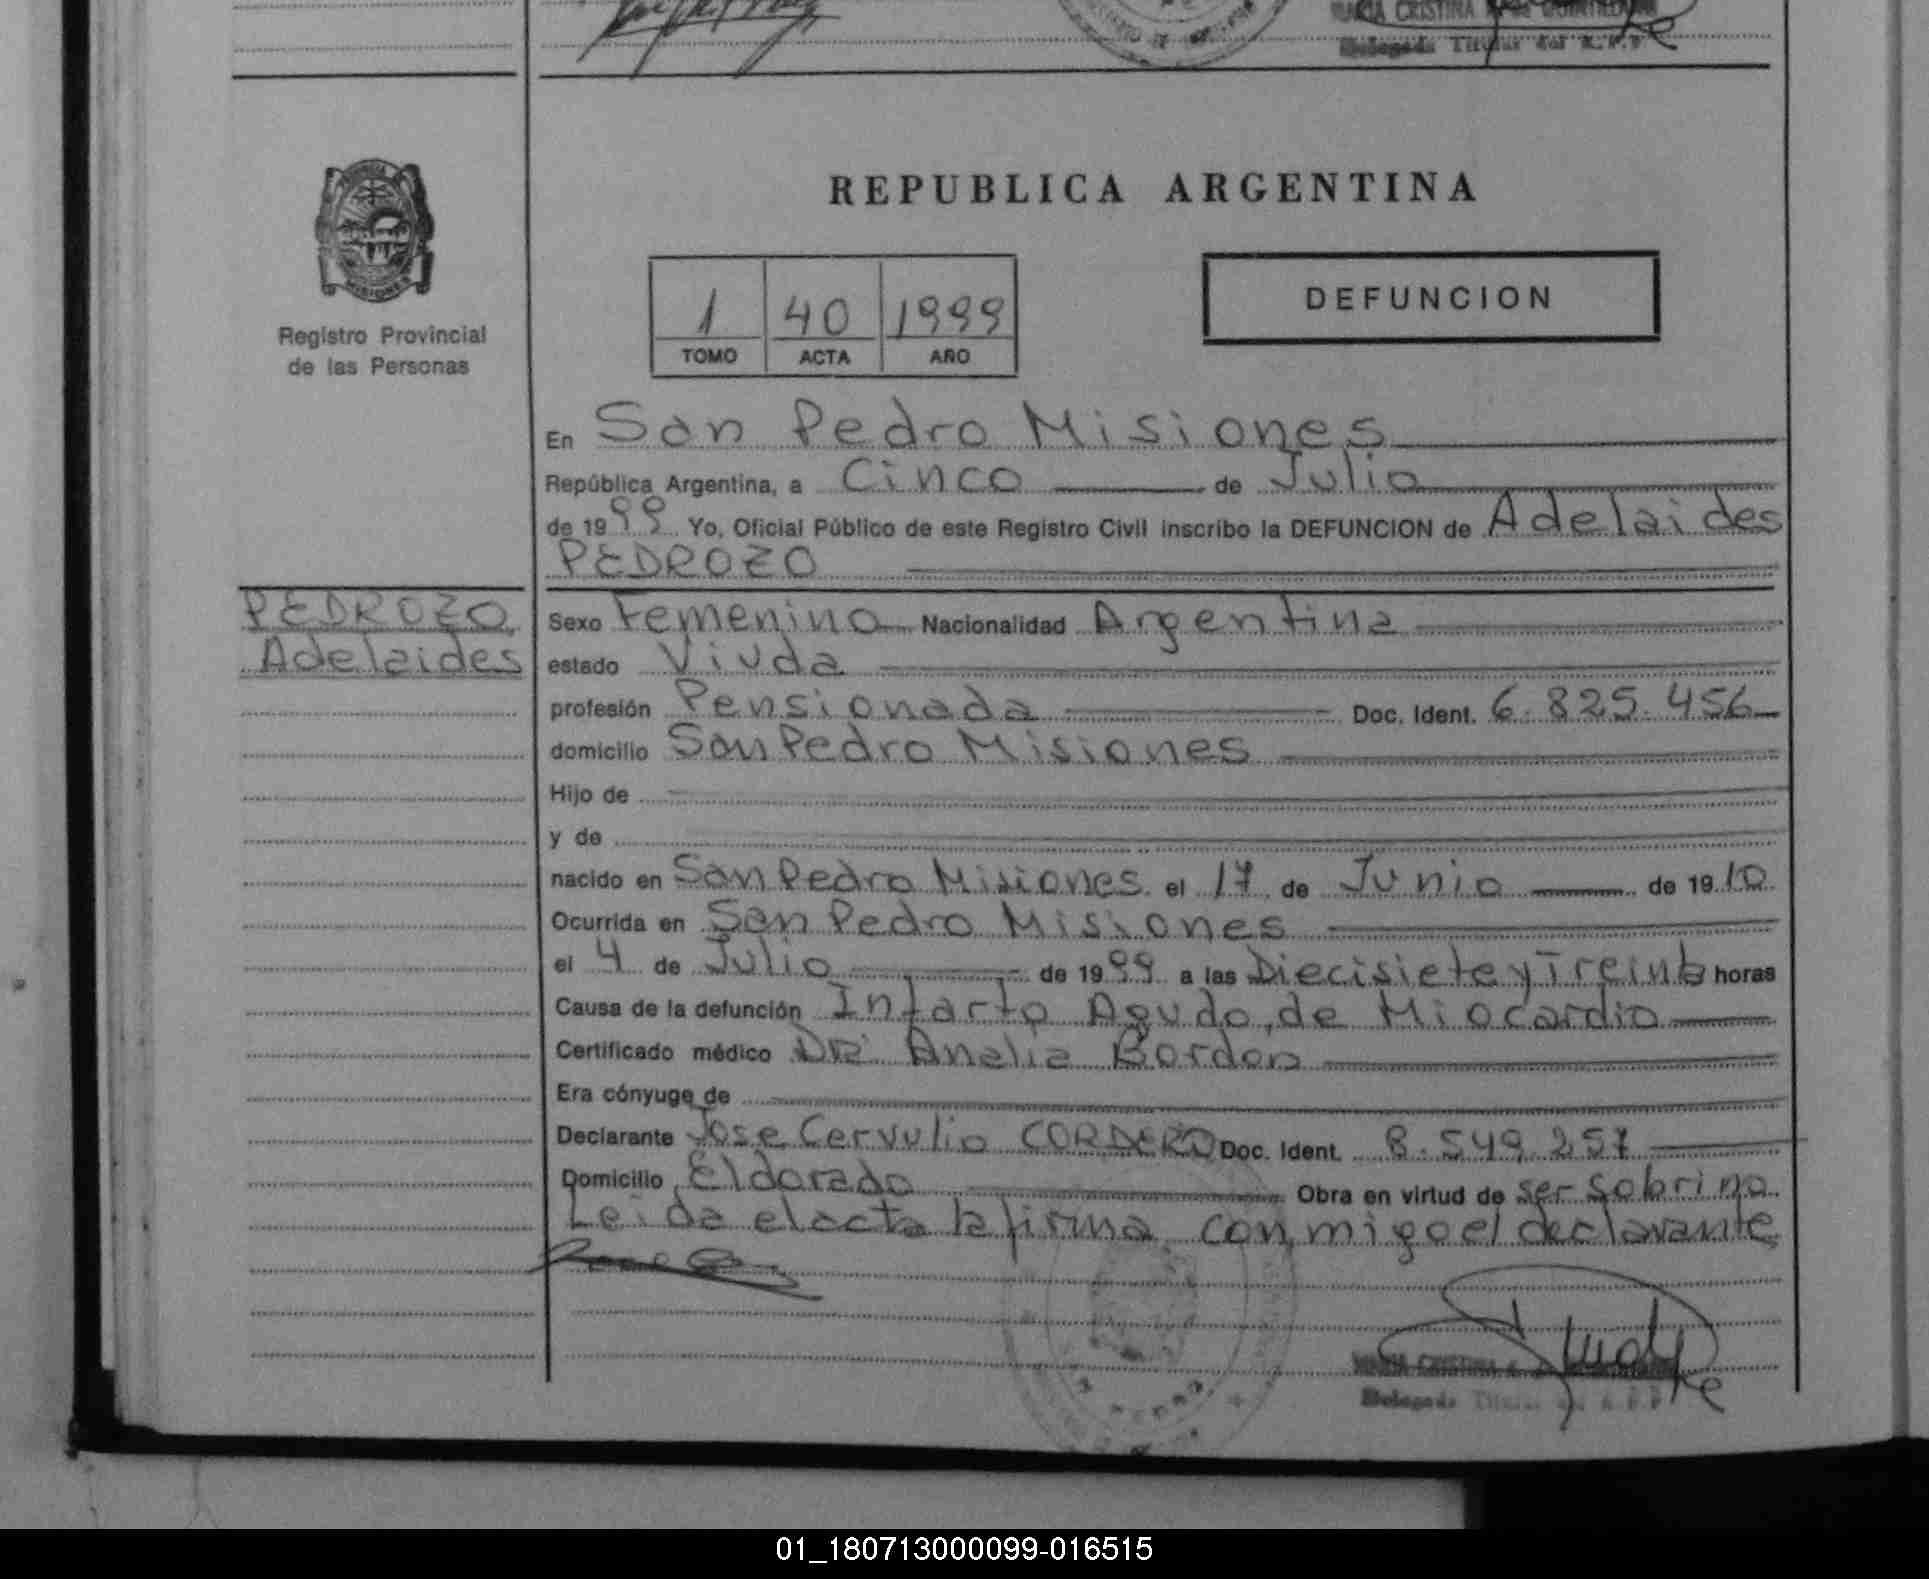 MARIA CRISTINA
Delegada Titular del R.P.P
PROVINCIA
MISIONES
Registro Provincial
de las Personas
REPUBLICA ARGENTINA
1 40 1999
TOMO ACTA AÑO
DEFUNCION
En San Pedro Misiones
República Argentina, a Cinco de Julio
de 1999 Yo, Oficial Público de este Registro Civil inscribo la DEFUNCION de Adelaides
PEDROZO
PEDROZO
Adelaides
Sexo Femenino Nacionalidad Argentina
estado Viuda
profesión Pensionada Doc. Ident. 6.825.456
domicilio San Pedro Misiones
Hijo de
y de
nacido en San Pedro Misiones el 17 de Junio de 1910
Ocurrida en San Pedro Misiones
el 4 de Julio de 1999 a las Diecisiete y Treinta horas
Causa de la defunción Infarto Agudo de Miocardio
Certificado médico Dra Analia Bordon
Era cónyuge de
Declarante Jose Cervulio CORDERO Doc. Ident. 8.549.257
Domicilio Eldorado Obra en virtud de ser sobrino
Leida el acta la firma conmigo el declarante
MARIA CRISTINA
Delegada Titular del R.P.P
01_180713000099-016515